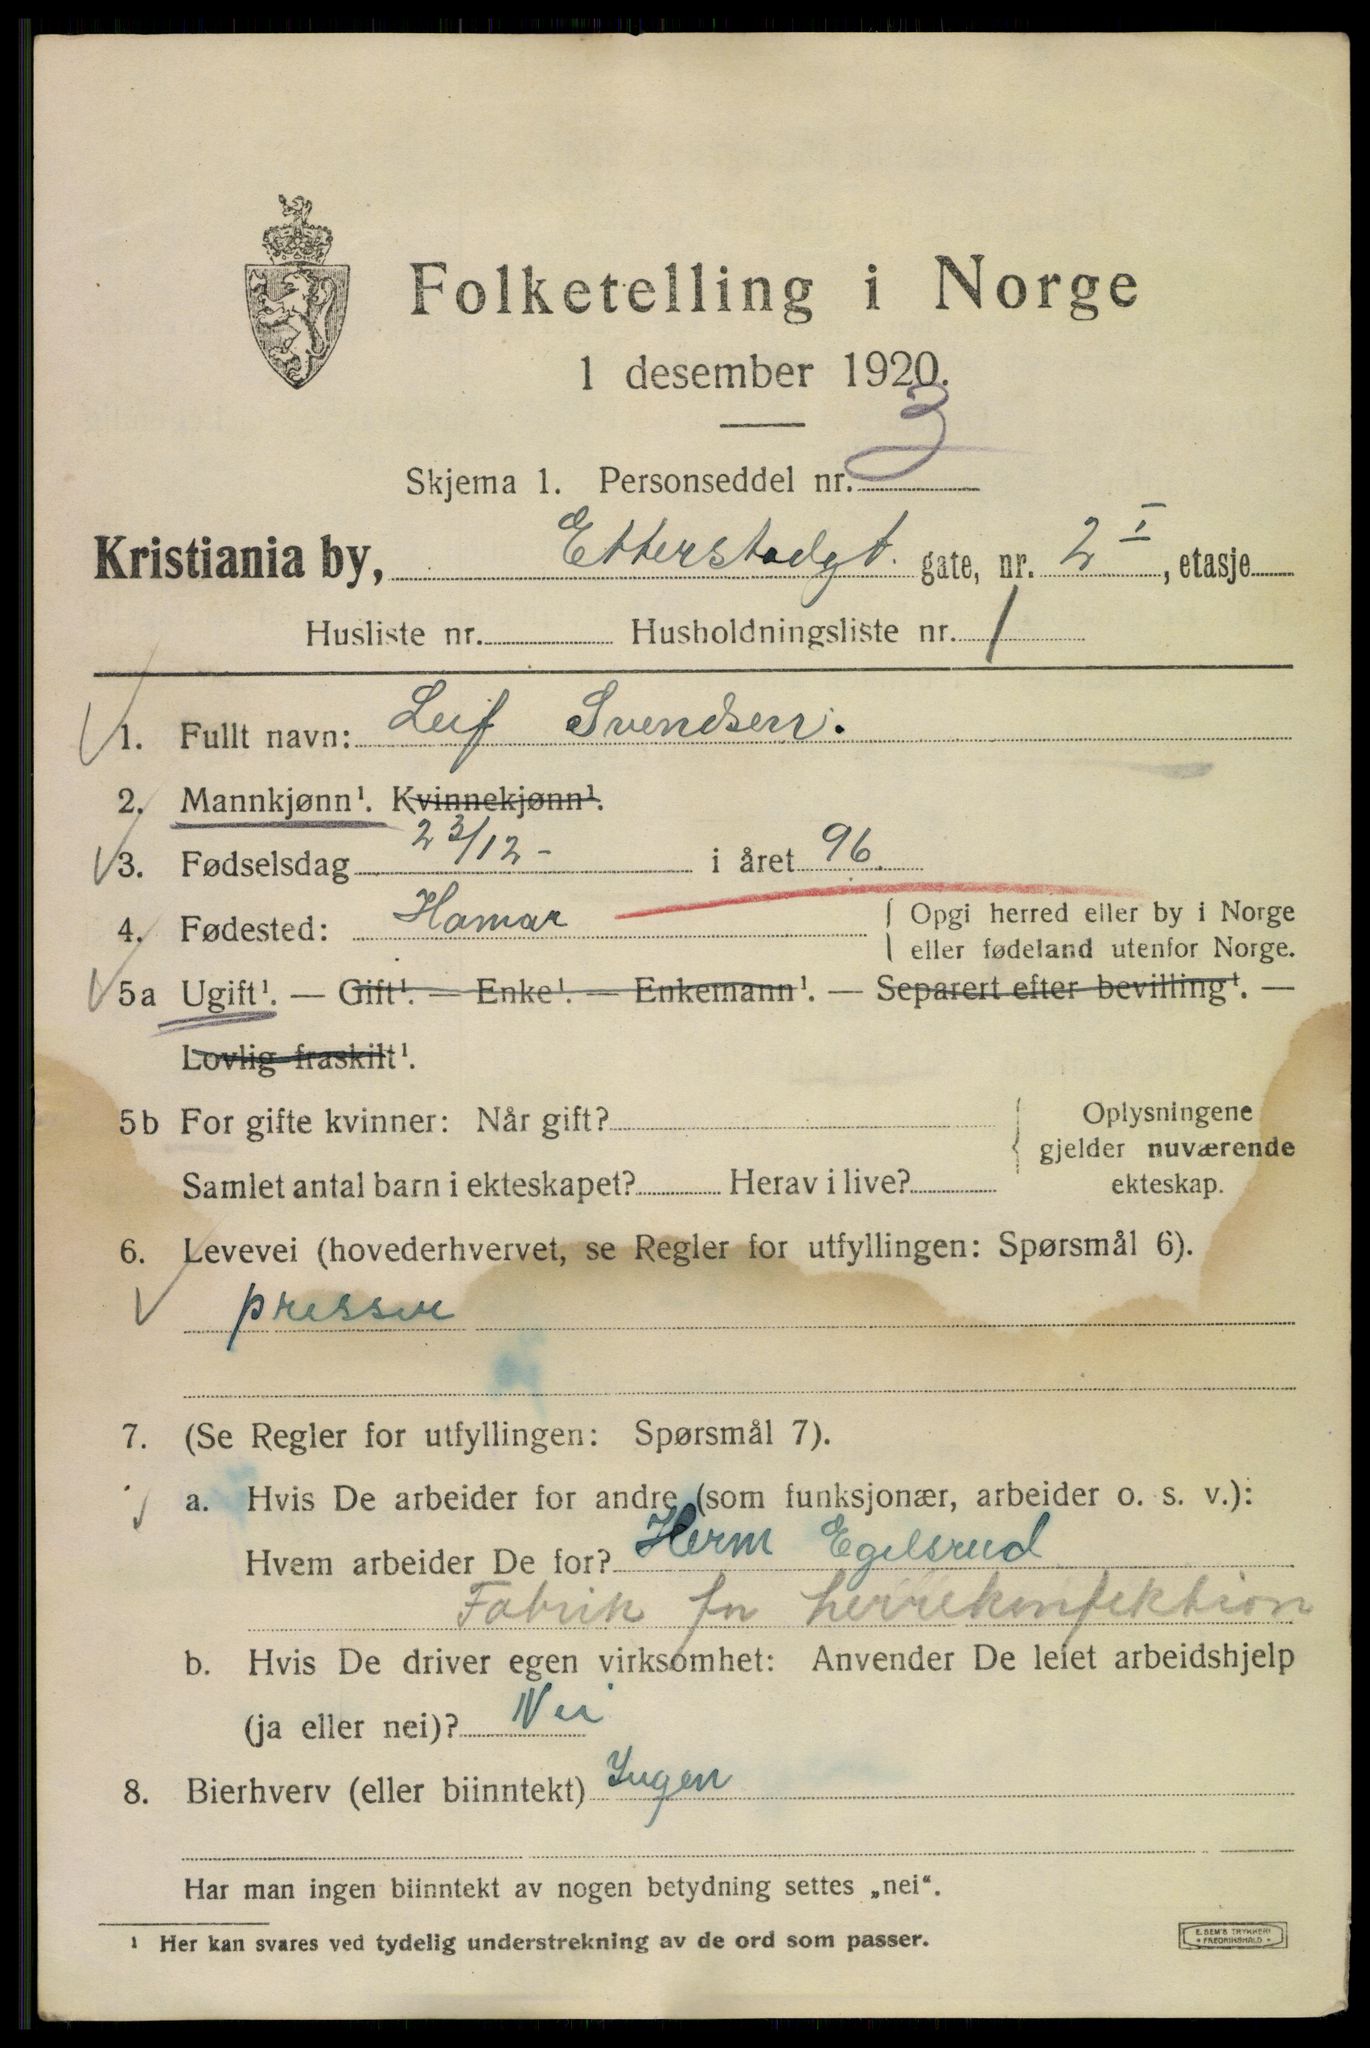 Folketelling i Norge
1 desember 1920.
Skjema 1. Personseddel nr. 3
Kristiania by, Etterstadgt. gate, nr. 2 I, etasje
Husliste nr. Husholdningsliste nr. 1
1. Fullt navn: Leif Svendsen.
2. Mannkjønn¹. Kvinnekjønn¹.
3. Fødselsdag 23/12- i året 96.
4. Fødested: Hamar { Opgi herred eller by i Norge
eller fødeland utenfor Norge.
5a Ugift¹. — Gift¹. — Enke¹. — Enkemann¹. — Separert efter bevilling¹. —
Lovlig fraskilt¹.
5b For gifte kvinner: Når gift? { Oplysningene
gjelder nuværende
Samlet antal barn i ekteskapet? Herav i live? ekteskap.
6. Levevei (hovederhvervet, se Regler for utfyllingen: Spørsmål 6).
presser
7. (Se Regler for utfyllingen: Spørsmål 7).
a. Hvis De arbeider for andre (som funksjonær, arbeider o. s. v.):
Hvem arbeider De for? Herm Egelsrud
Fabrik for herrekonfektion
b. Hvis De driver egen virksomhet: Anvender De leiet arbeidshjelp
(ja eller nei)? Nei
8. Bierhverv (eller biinntekt) Ingen
Har man ingen biinntekt av nogen betydning settes „nei“.
¹ Her kan svares ved tydelig understrekning av de ord som passer.
E. SEM'S TRYKKERI
FREDRIKSHALD